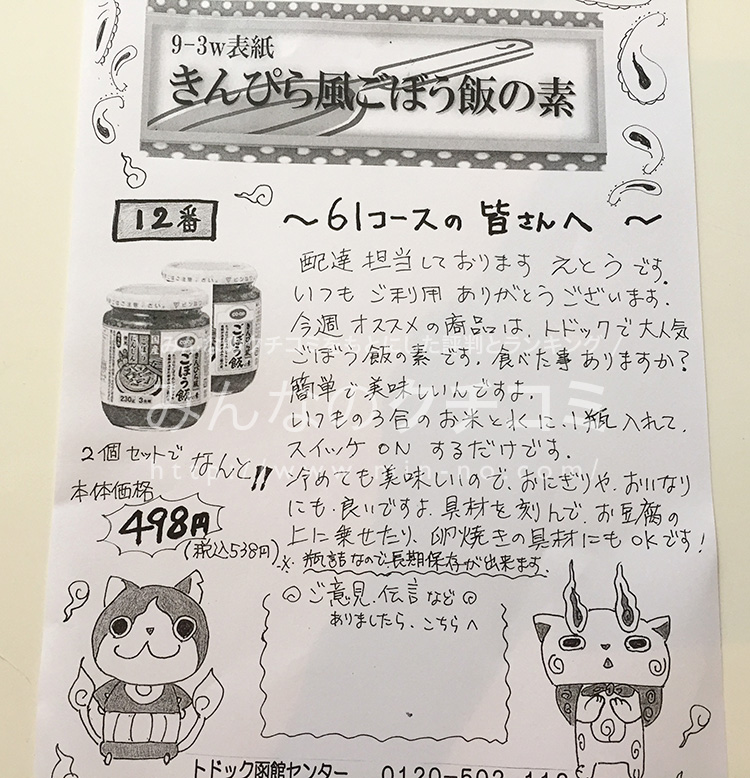 9-3w表紙
きんぴら風ごぼう飯の素
12番
～61コースの皆さんへ～
配達担当しております えとうです.
いつもご利用ありがとうございます.
今週オススメの商品は、トドックで大人気
ごぼう飯の素です. 食べた事ありますか?
簡単で美味しいんですよ.
いつもの3合のお米と水に1瓶入れて.
スイッチON するだけです.
冷めても美味しいので、おにぎりや.おいなり
にも.良いですよ.具材を刻んで.お豆腐の
上に乗せたり、卵焼きの具材にもOKです!
※瓶詰なので長期保存が出来ます.
ごぼう飯
ごぼう飯
230g 3合用
2個セットで なんと!!
本体価格
498円
(税込538円)
◎ご意見.伝言など◎
ありましたら、こちらへ
トドック函館センター 0120-502-
みんなのクチコミをもとにした評判とランキング
みんなのクチコミ
http://www.min-no.com/